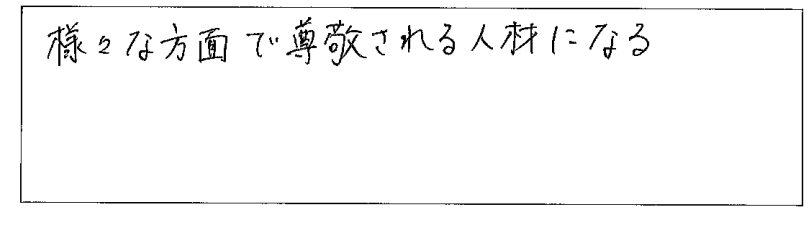 様々な方面で尊敬される人材になる